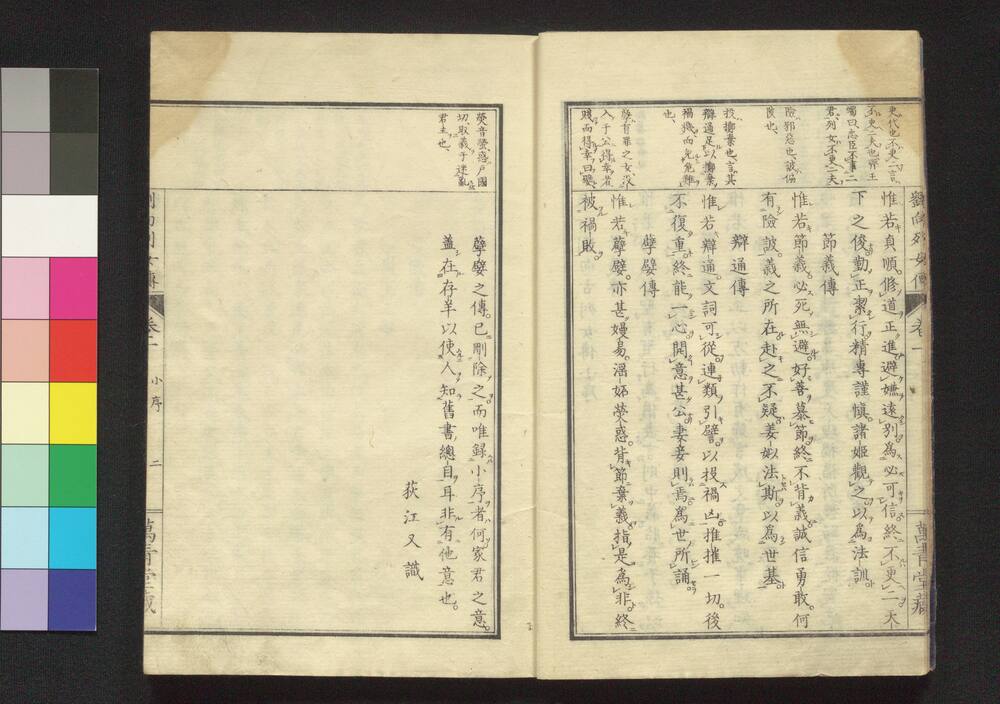 更代也不更二言
不更二夫也齊王
蠋曰忠臣不事二
君列女不更二夫
險邪惡也詖偏
陂也
投擲棄也言其
辯通足以擲棄
禍難而免危難
也
孽有罪之女沒
入于公得幸者
賤而得幸曰嬖
劉向列女傳 卷一
萬青堂藏
惟若貞順修道正進避嫌遠別為必可信終不更二天
下之俊勤正潔行精專謹愼諸姬觀之以為法訓
節義傳
惟若節義必死無避好善慕節終不背義誠信勇敢何
有險詖義之所在赴之不疑姜姒法斯以為世基
辯通傳
惟若辯通文詞可從連類引譬以投禍凶推摧一切後
不復重終能一心開意甚公妻妾則焉為世所誦
孽嬖傳
惟若孽嬖亦甚嫚易淫妬熒惑背節棄義指是為非終
被禍敗
熒音螢惑戶國
切取義于迷亂
君主也
孽嬖之傳已刪除之而唯錄小序者何家君之意
蓋在存羊以使人知舊書總目耳非有他意也
荻江又識
劉向列女傳 卷一 小序 二
萬青堂藏